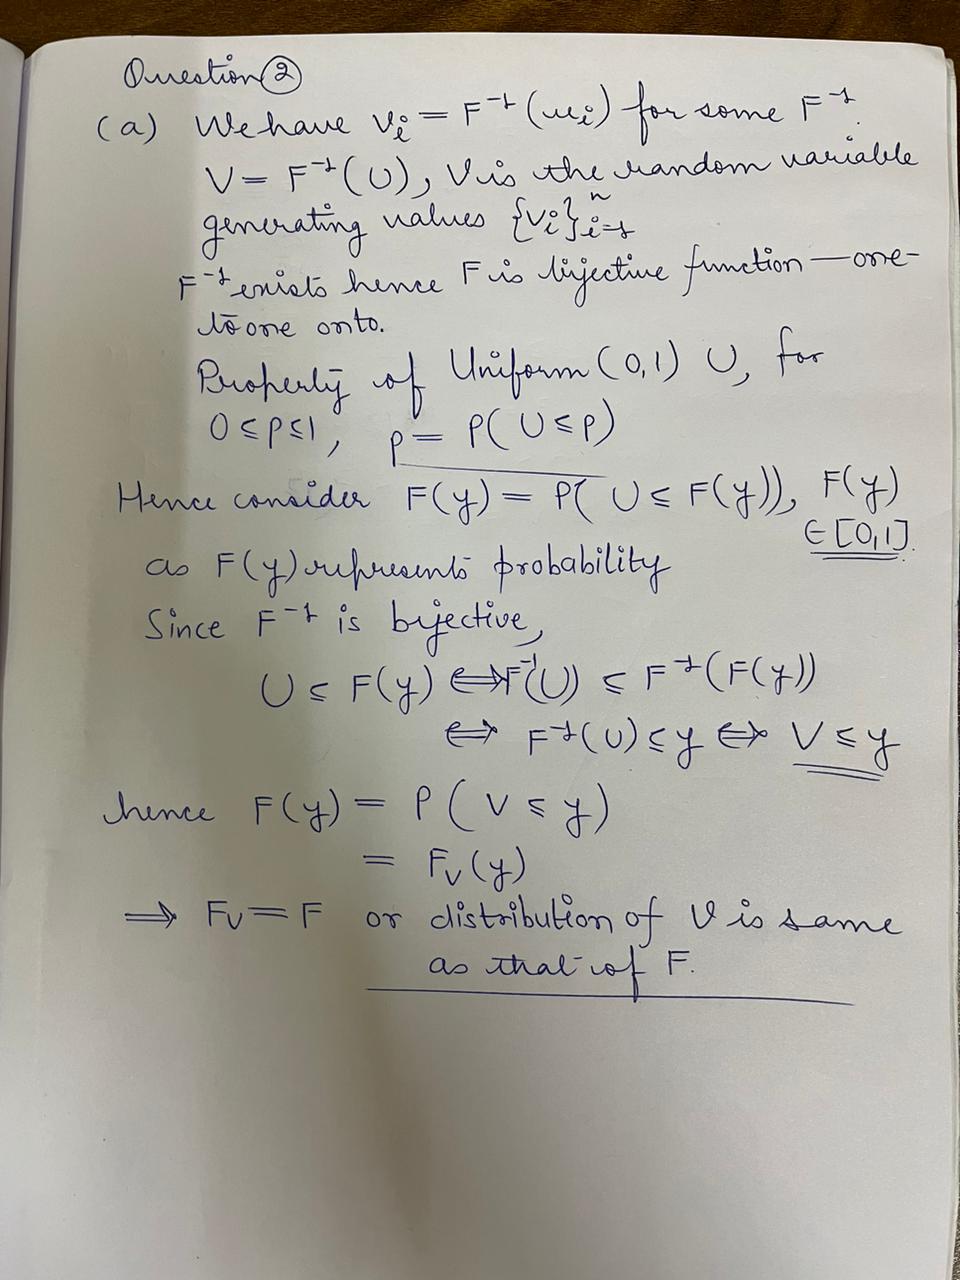 Question ②
(a) We have vᵢ = F⁻¹(uᵢ) for some F⁻¹.
V = F⁻¹(U), V is the random variable
generating values {vᵢ}ⁿᵢ₌₁
F⁻¹ exists hence F is bijective function — one-
to one onto.
Property of Uniform (0,1) U, for
0 ≤ p ≤ 1, p = P(U ≤ p)
Hence consider F(y) = P(U ≤ F(y)), F(y)
∈ [0,1].
as F(y) represents probability
Since F⁻¹ is bijective,
U ≤ F(y) ⟺ F⁻¹(U) ≤ F⁻¹(F(y))
⟺ F⁻¹(U) ≤ y ⟺ V ≤ y
hence F(y) = P(V ≤ y)
= Fᵥ(y)
⟹ Fᵥ = F or distribution of V is same
as that of F.